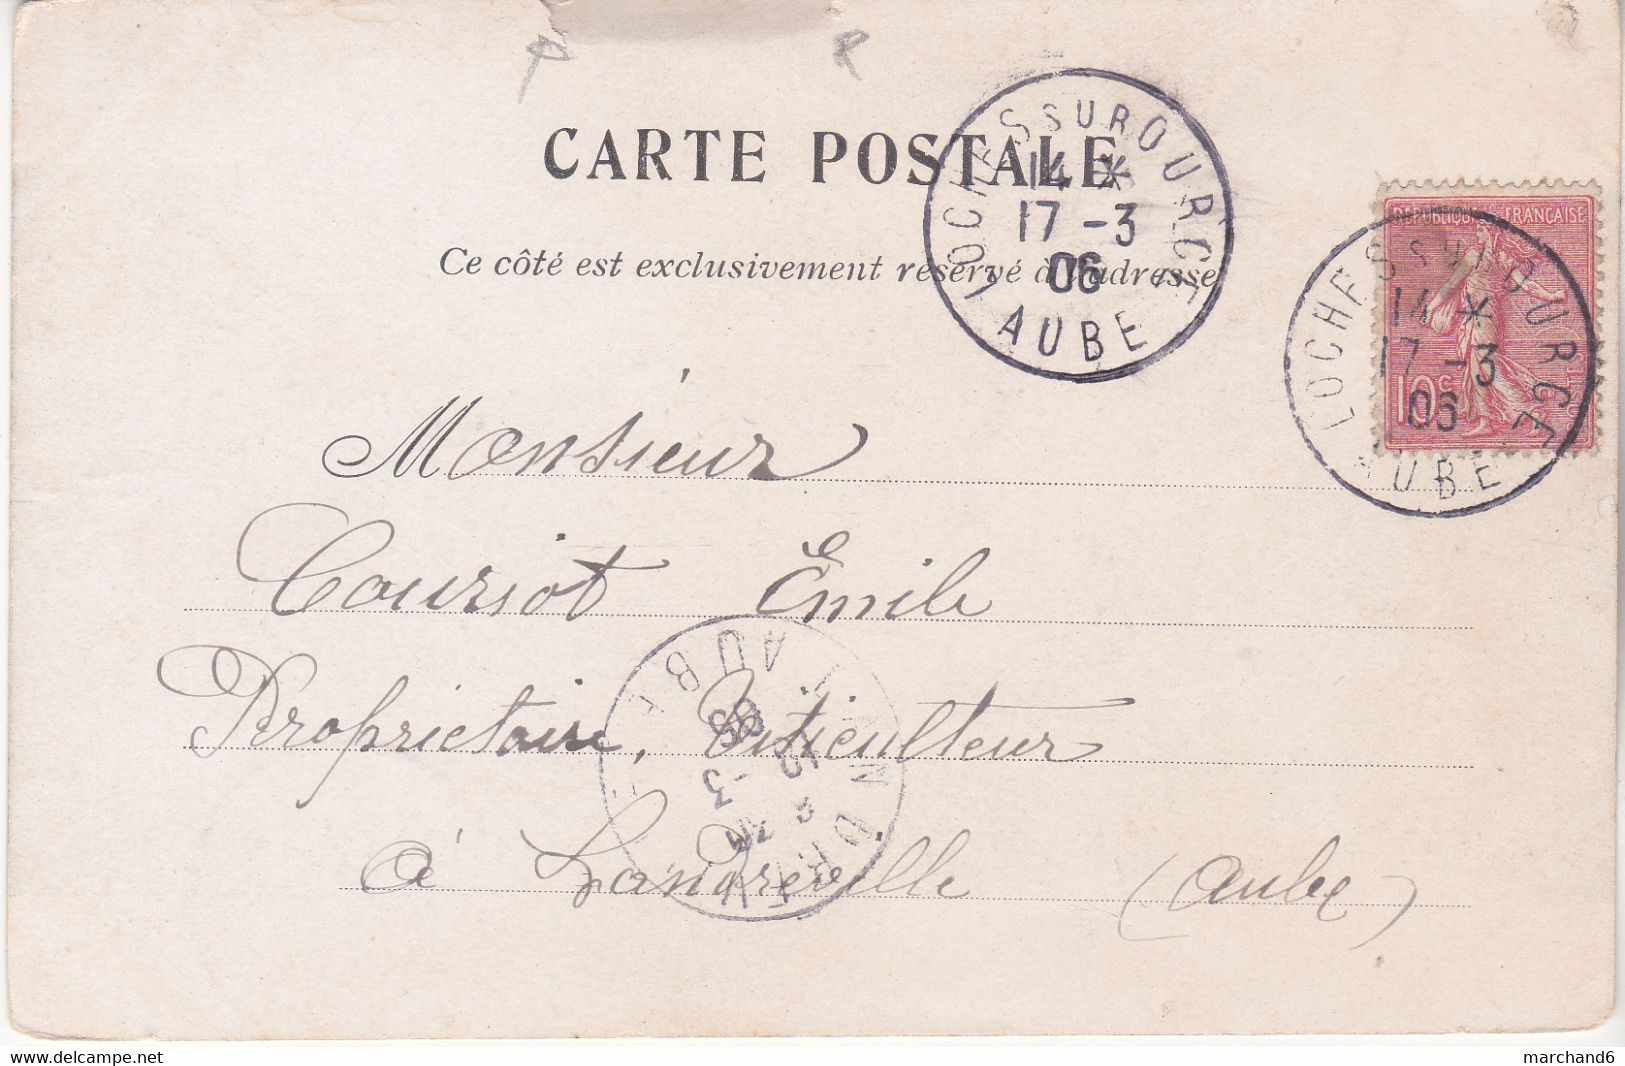 CARTE POSTALE
Ce côté est exclusivement réservé à l'adresse
LOCHES SUR OURCE
14 *
17 -3
06
AUBE
REPUBLIQUE FRANÇAISE
10c
POSTES
LOCHES SUR OURCE
14 *
17 -3
06
AUBE
Monsieur
Coursot Émile
Propriétaire, Viticulteur
à Landreville (Aube)
LANDREVILLE
-3
06
AUBE
www.delcampe.net
marchand6